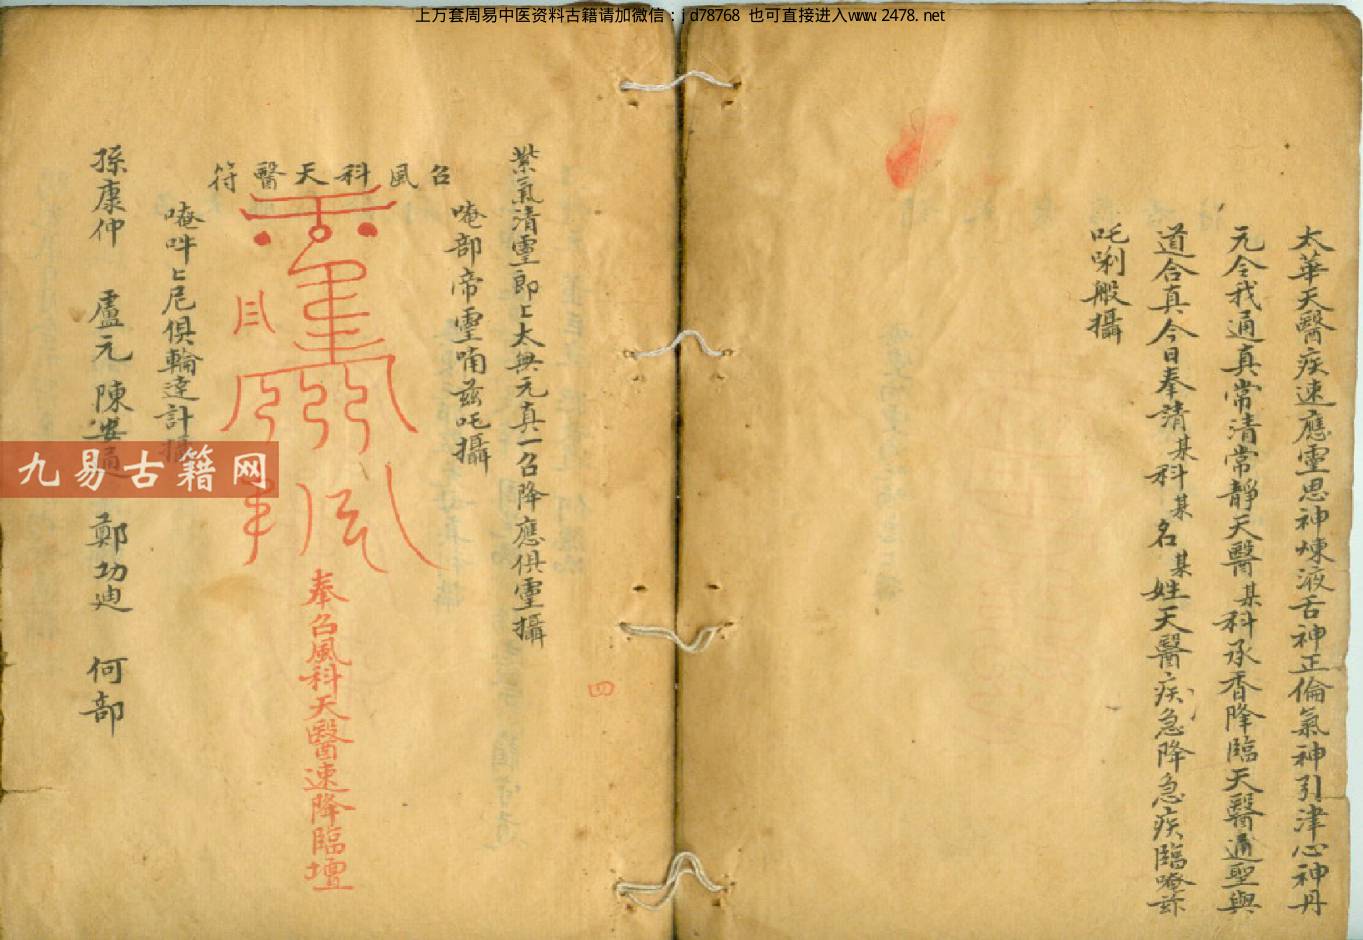 上万套周易中医资料古籍请加微信：jd78768 也可直接进入www.2478.net
太華天醫疾速應靈思神煉液舌神正倫氣神引津心神丹
元令我通真常清常靜天醫某科承香降臨天醫通聖與
道合真今日奉清某科某名某姓天醫疾急降急疾臨唵
吒唎般攝
四
紫氣清靈郎上太無元真一召降應俱靈攝
唵部帝靈喃茲吒攝
召風科天醫符
奉召風科天醫速降臨壇
唵吽上尼俱輪達計攝
孫康仲 盧元 陳 鄭功迪 何部
九易古籍网